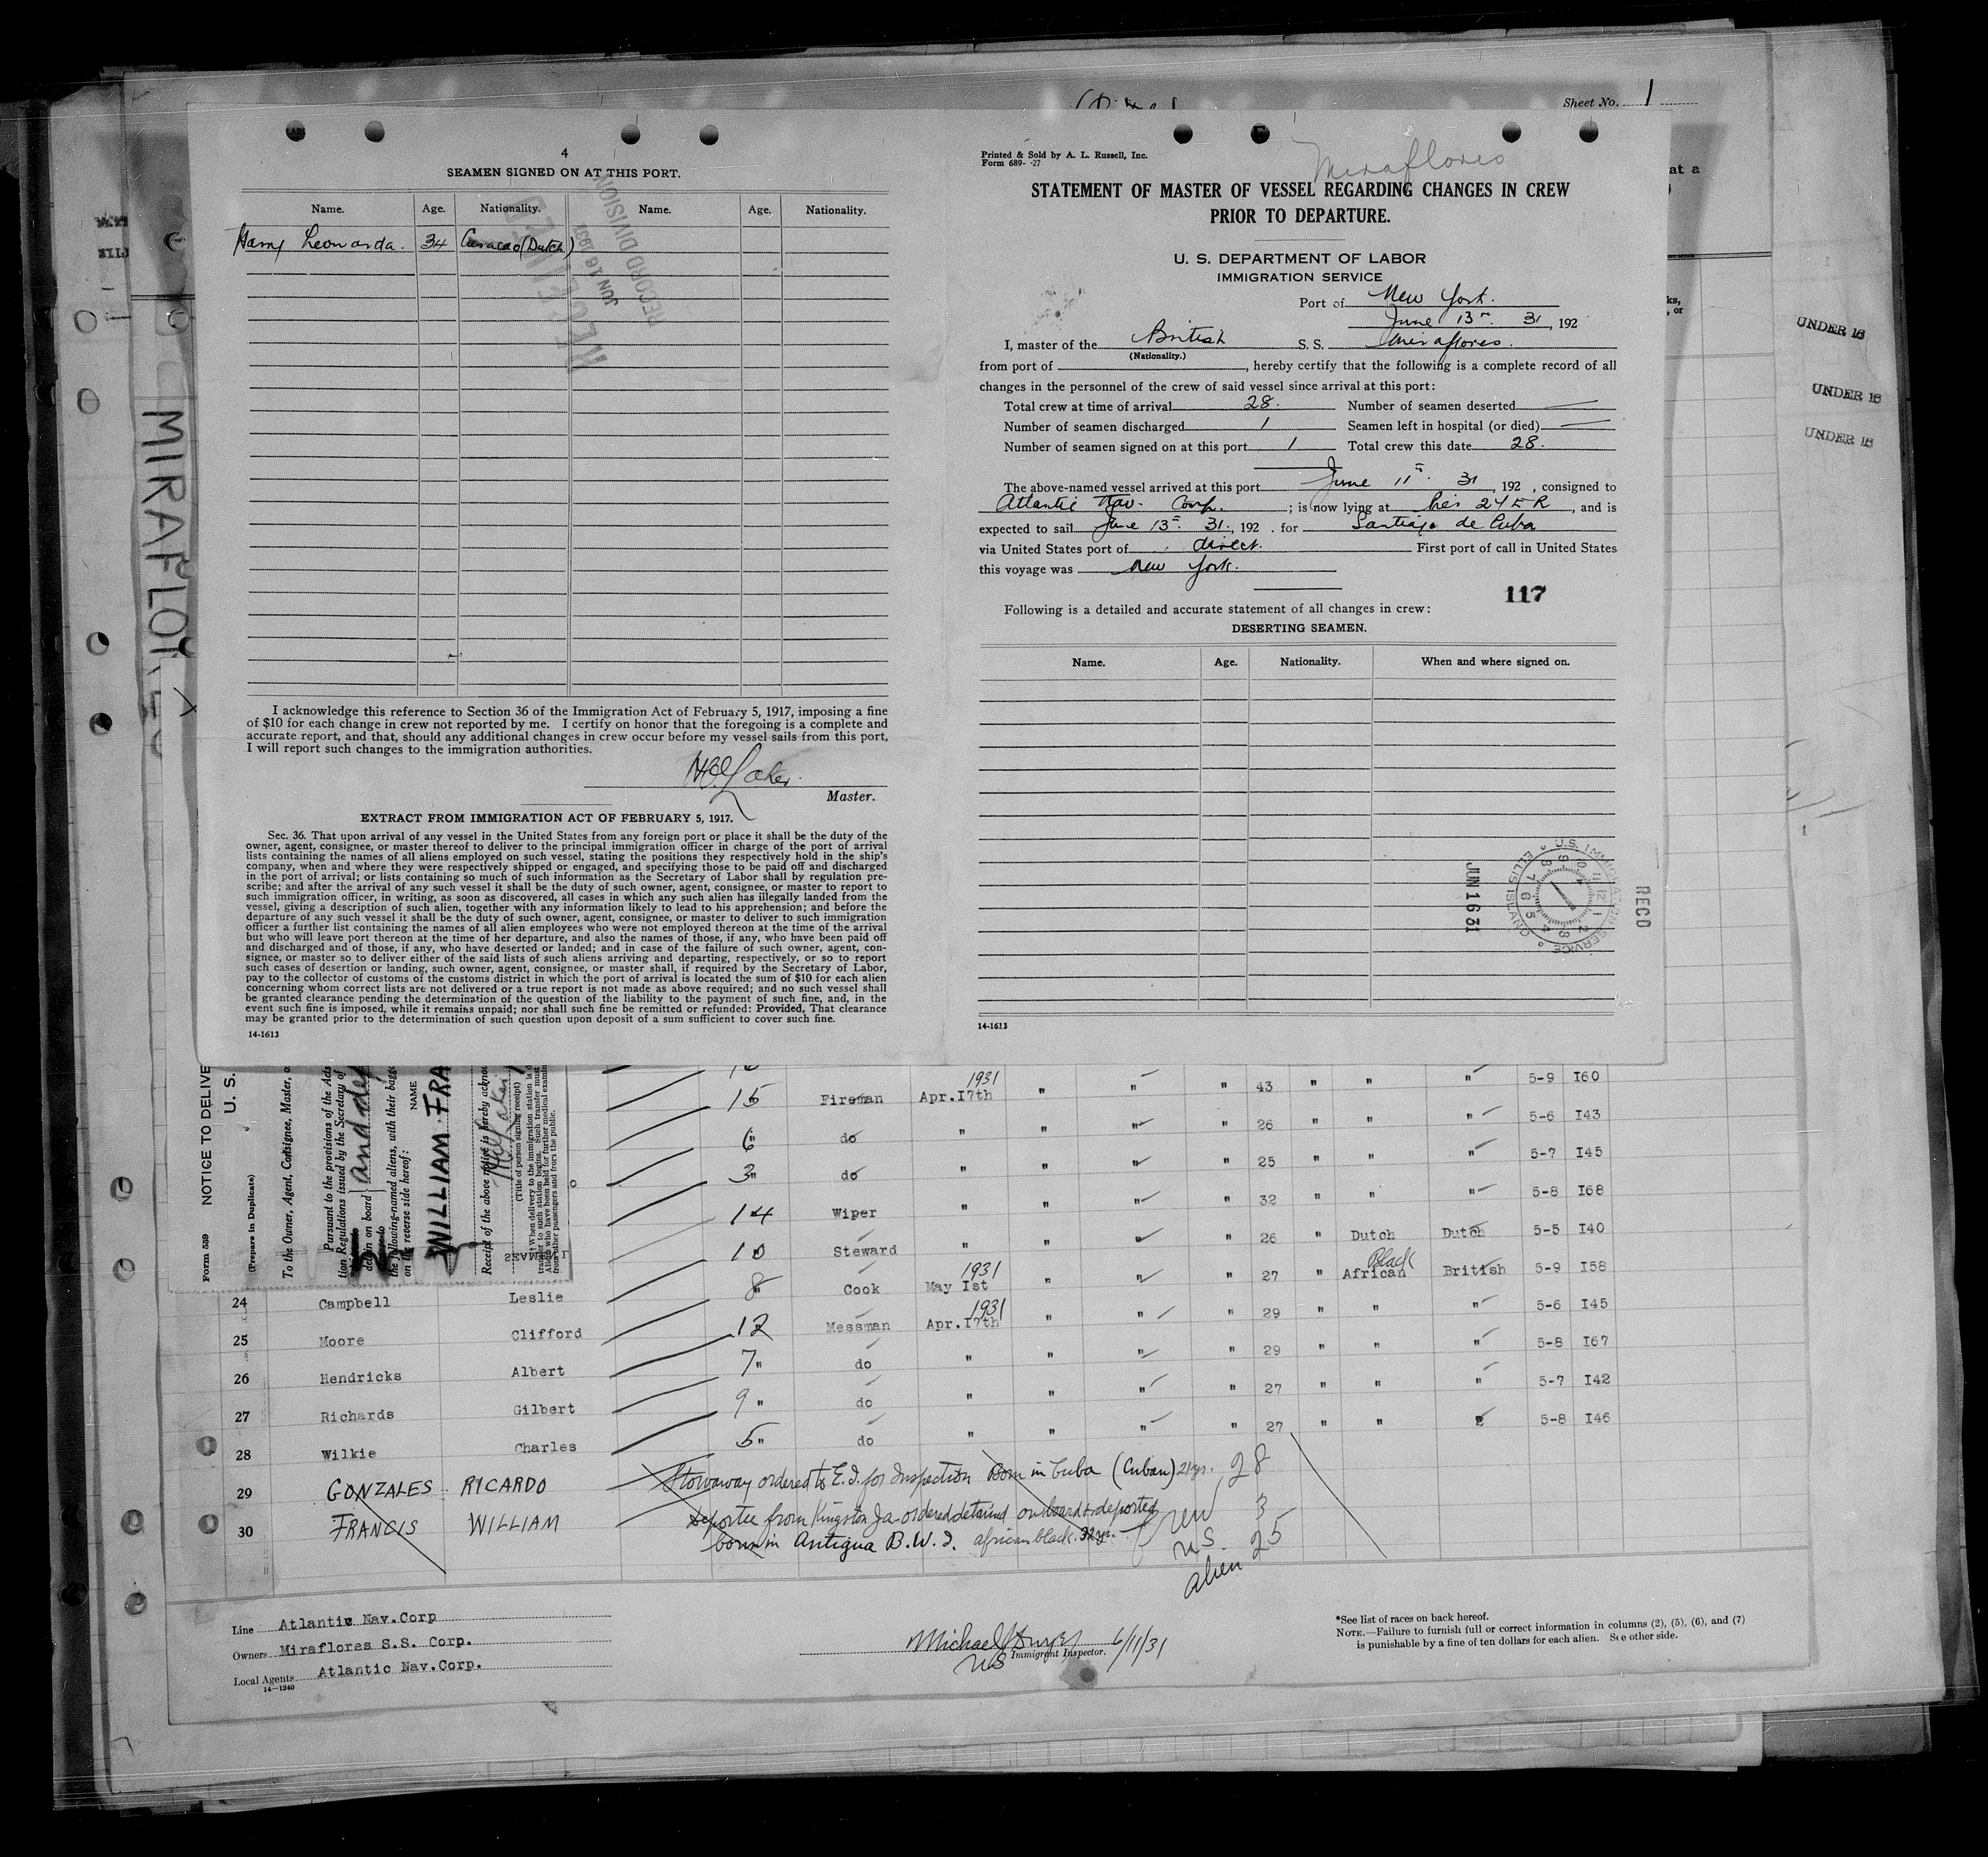 Sheet No. 1
4
SEAMEN SIGNED ON AT THIS PORT.
Name. Age. Nationality. Name. Age. Nationality.
Harry Leonarda. 34 Curacao (Dutch)
RECEIVED
JUN 16 1931
RECORD DIVISION
I acknowledge this reference to Section 36 of the Immigration Act of February 5, 1917, imposing a fine
of $10 for each change in crew not reported by me. I certify on honor that the foregoing is a complete and
accurate report, and that, should any additional changes in crew occur before my vessel sails from this port,
I will report such changes to the immigration authorities.
Master.
EXTRACT FROM IMMIGRATION ACT OF FEBRUARY 5, 1917.
Sec. 36. That upon arrival of any vessel in the United States from any foreign port or place it shall be the duty of the
owner, agent, consignee, or master thereof to deliver to the principal immigration officer in charge of the port of arrival
lists containing the names of all aliens employed on such vessel, stating the positions they respectively hold in the ship's
company, when and where they were respectively shipped or engaged, and specifying those to be paid off and discharged
in the port of arrival; or lists containing so much of such information as the Secretary of Labor shall by regulation pre-
scribe; and after the arrival of any such vessel it shall be the duty of such owner, agent, consignee, or master to report to
such immigration officer, in writing, as soon as discovered, all cases in which any such alien has illegally landed from the
vessel, giving a description of such alien, together with any information likely to lead to his apprehension; and before the
departure of any such vessel it shall be the duty of such owner, agent, consignee, or master to deliver to such immigration
officer a further list containing the names of all alien employees who were not employed thereon at the time of the arrival
but who will leave port thereon at the time of her departure, and also the names of those, if any, who have been paid off
and discharged and of those, if any, who have deserted or landed; and in case of the failure of such owner, agent, con-
signee, or master so to deliver either of the said lists of such aliens arriving and departing, respectively, or so to report
such cases of desertion or landing, such owner, agent, consignee, or master shall, if required by the Secretary of Labor,
pay to the collector of customs of the customs district in which the port of arrival is located the sum of $10 for each alien
concerning whom correct lists are not delivered or a true report is not made as above required; and no such vessel shall
be granted clearance pending the determination of the question of the liability to the payment of such fine, and, in the
event such fine is imposed, while it remains unpaid; nor shall such fine be remitted or refunded: Provided, That clearance
may be granted prior to the determination of such question upon deposit of a sum sufficient to cover such fine.
14-1613
Printed & Sold by A. L. Russell, Inc.
Form 689- -27
Miraflores
STATEMENT OF MASTER OF VESSEL REGARDING CHANGES IN CREW
PRIOR TO DEPARTURE.
U. S. DEPARTMENT OF LABOR
IMMIGRATION SERVICE
Port of New York.
June 13th. 31, 192
I, master of the British S. S. Miraflores.
(Nationality.)
from port of , hereby certify that the following is a complete record of all
changes in the personnel of the crew of said vessel since arrival at this port:
Total crew at time of arrival 28. Number of seamen deserted —
Number of seamen discharged 1 Seamen left in hospital (or died) —
Number of seamen signed on at this port 1 Total crew this date 28.
The above-named vessel arrived at this port June 11th. 31, 192 , consigned to
Atlantic Nav. Corp. ; is now lying at Pier 24 E R, and is
expected to sail June 13th. 31., 192 . for Santiago de Cuba
via United States port of direct. First port of call in United States
this voyage was New York.
117
Following is a detailed and accurate statement of all changes in crew:
DESERTING SEAMEN.
Name. Age. Nationality. When and where signed on.
RECD
U.S. IMMIGRATION SERVICE
ELLIS ISLAND
JUN 16 31
14-1613
MIRAFLORES
UNDER 16
UNDER 16
UNDER 16
Form 559 NOTICE TO DELIVE
U. S.
(Prepare in Duplicate)
To the Owner, Agent, Consignee, Master, o
Pursuant to the provisions of the Acts
tion Regulations issued by the Secretary of
detain on board and de
the following-named aliens, with their bagg
on the reverse side hereof:
NAME
WILLIAM FRA
Receipt of the above notice is hereby acknow
(Title of person signing receipt)
15 Fireman Apr.I7th 1931 " " " 43 " " " 5-9 I60
6" do " " " " 26 " " " 5-6 I43
3" do " " " " 25 " " " 5-7 I45
14 Wiper " " " " 32 " " " 5-8 I68
10 Steward " " " 26 " Dutch Dutch 5-5 I40
24 Campbell Leslie 8" Cook May Ist 1931 " " " 27 " African Black British 5-9 I58
25 Moore Clifford 12 Messman Apr.I7th 1931 " " " 29 " " " 5-6 I45
26 Hendricks Albert 7" do " " " " 29 " " " 5-8 I67
27 Richards Gilbert 9" do " " " " 27 " " " 5-7 I42
28 Wilkie Charles 5" do " " " " 27 " " 5-8 I46
29 GONZALES RICARDO Stowaway ordered to E.I. for Inspection Born in Cuba (Cuban) 21yr.
30 FRANCIS WILLIAM Deportee from Kingston Ja ordered detained on board & deported
born in Antigua B.W.I. african black. 32yr.
Crew 28
U.S. 3
alien 25
Line Atlantic Nav.Corp
Owners Miraflores S.S. Corp.
Local Agents Atlantic Nav.Corp.
14—1240
Michael Dwyer 6/11/31
Immigrant Inspector.
*See list of races on back hereof.
NOTE.—Failure to furnish full or correct information in columns (2), (5), (6), and (7)
is punishable by a fine of ten dollars for each alien. See other side.